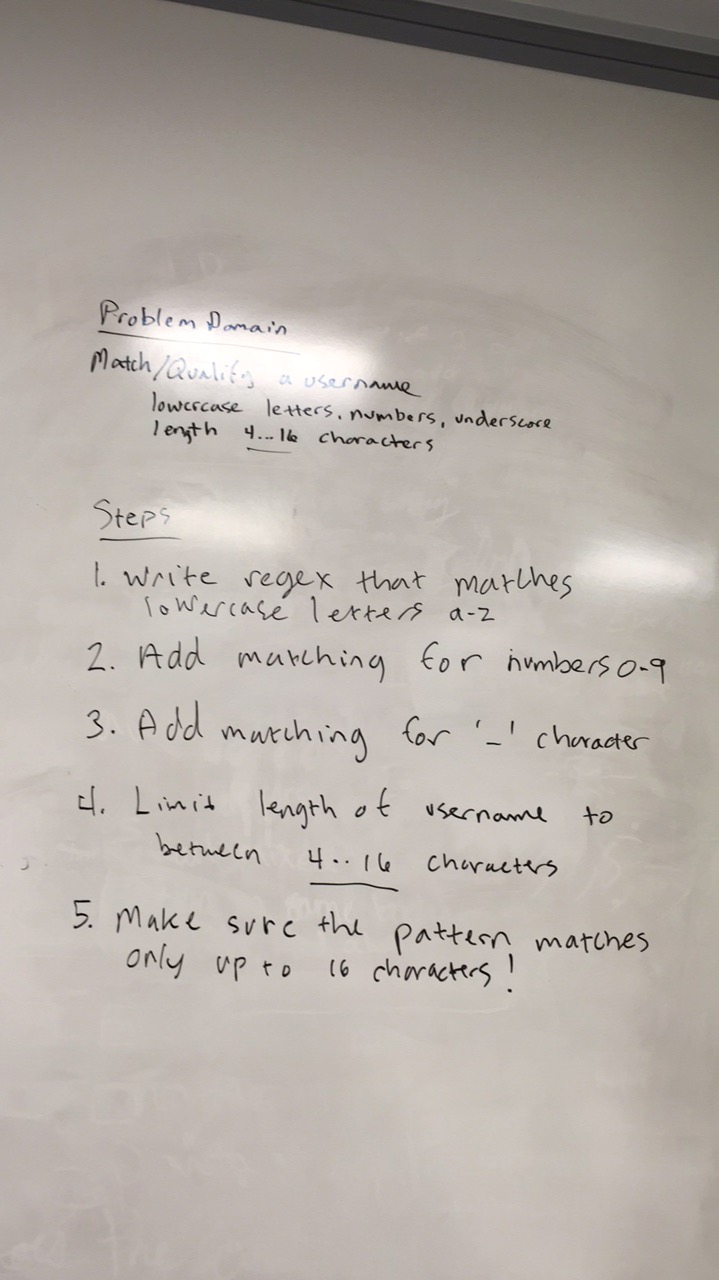 Problem Domain
Match/Qualify a username
lowercase letters, numbers, underscore
length 4...16 characters
Steps
1. Write regex that matches
lowercase letters a-z
2. Add matching for numbers 0-9
3. Add matching for '_' character
4. Limit length of username to
between 4..16 characters
5. Make sure the pattern matches
only up to 16 characters!